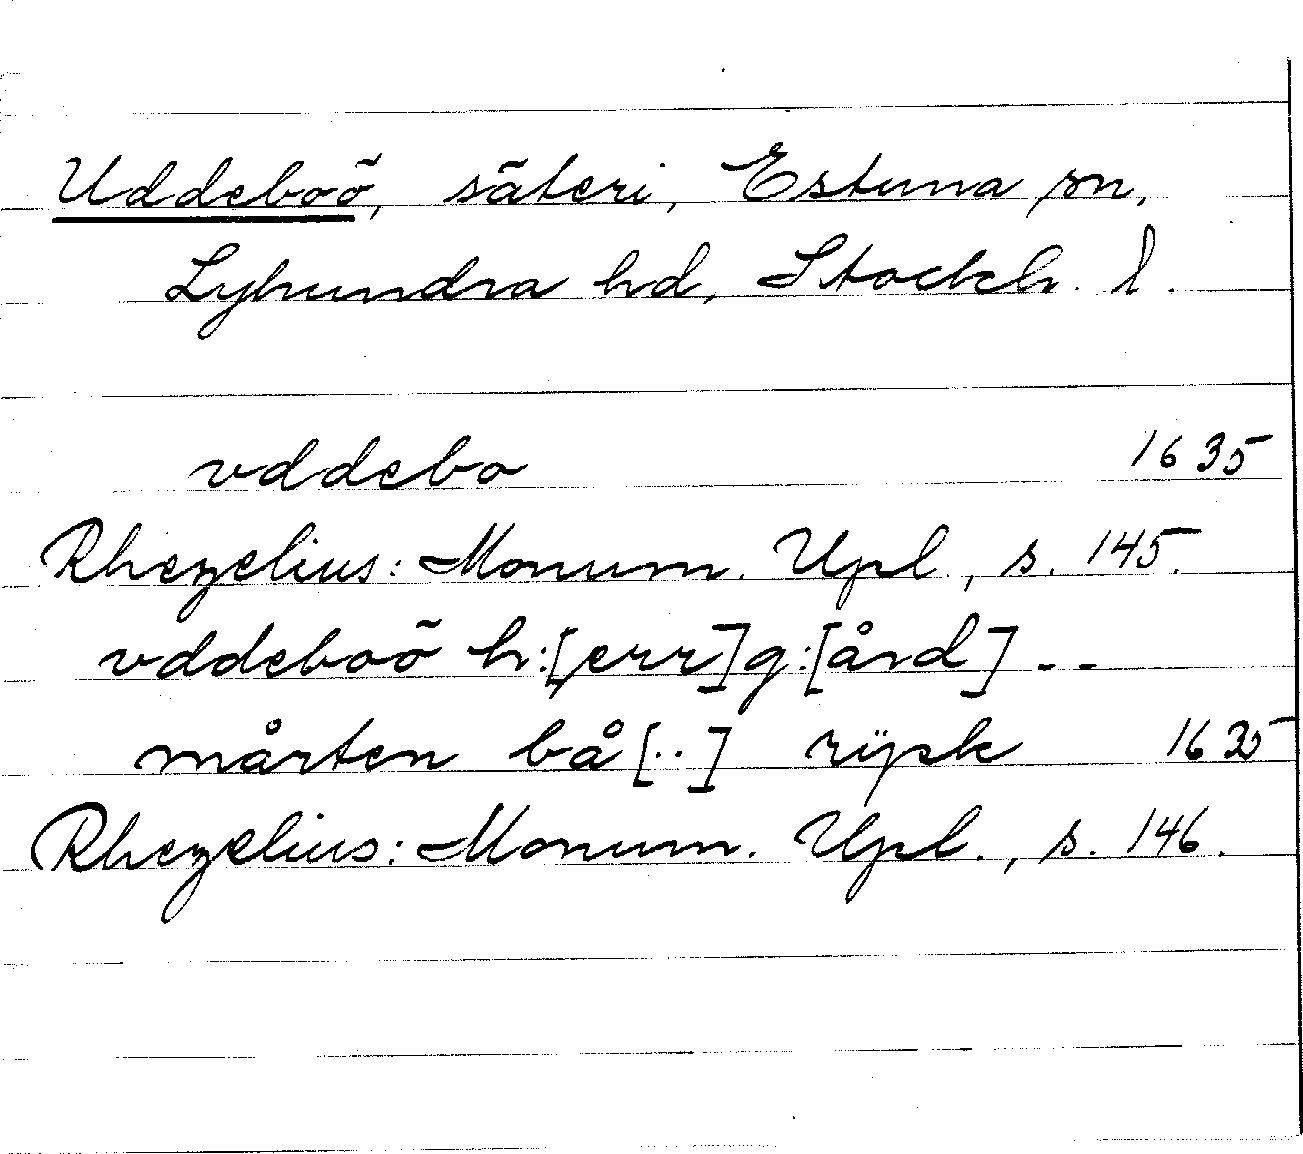 Uddeboö, säteri, Estuna sn,
Lyhundra hd, Stockh. l.
vddebo 1635
Rhezelius: Monum. Upl., s. 145.
vddeboö h:[err]g:[ård] --
mårten bå[..] rÿsk 1635
Rhezelius: Monum. Upl., s. 146.